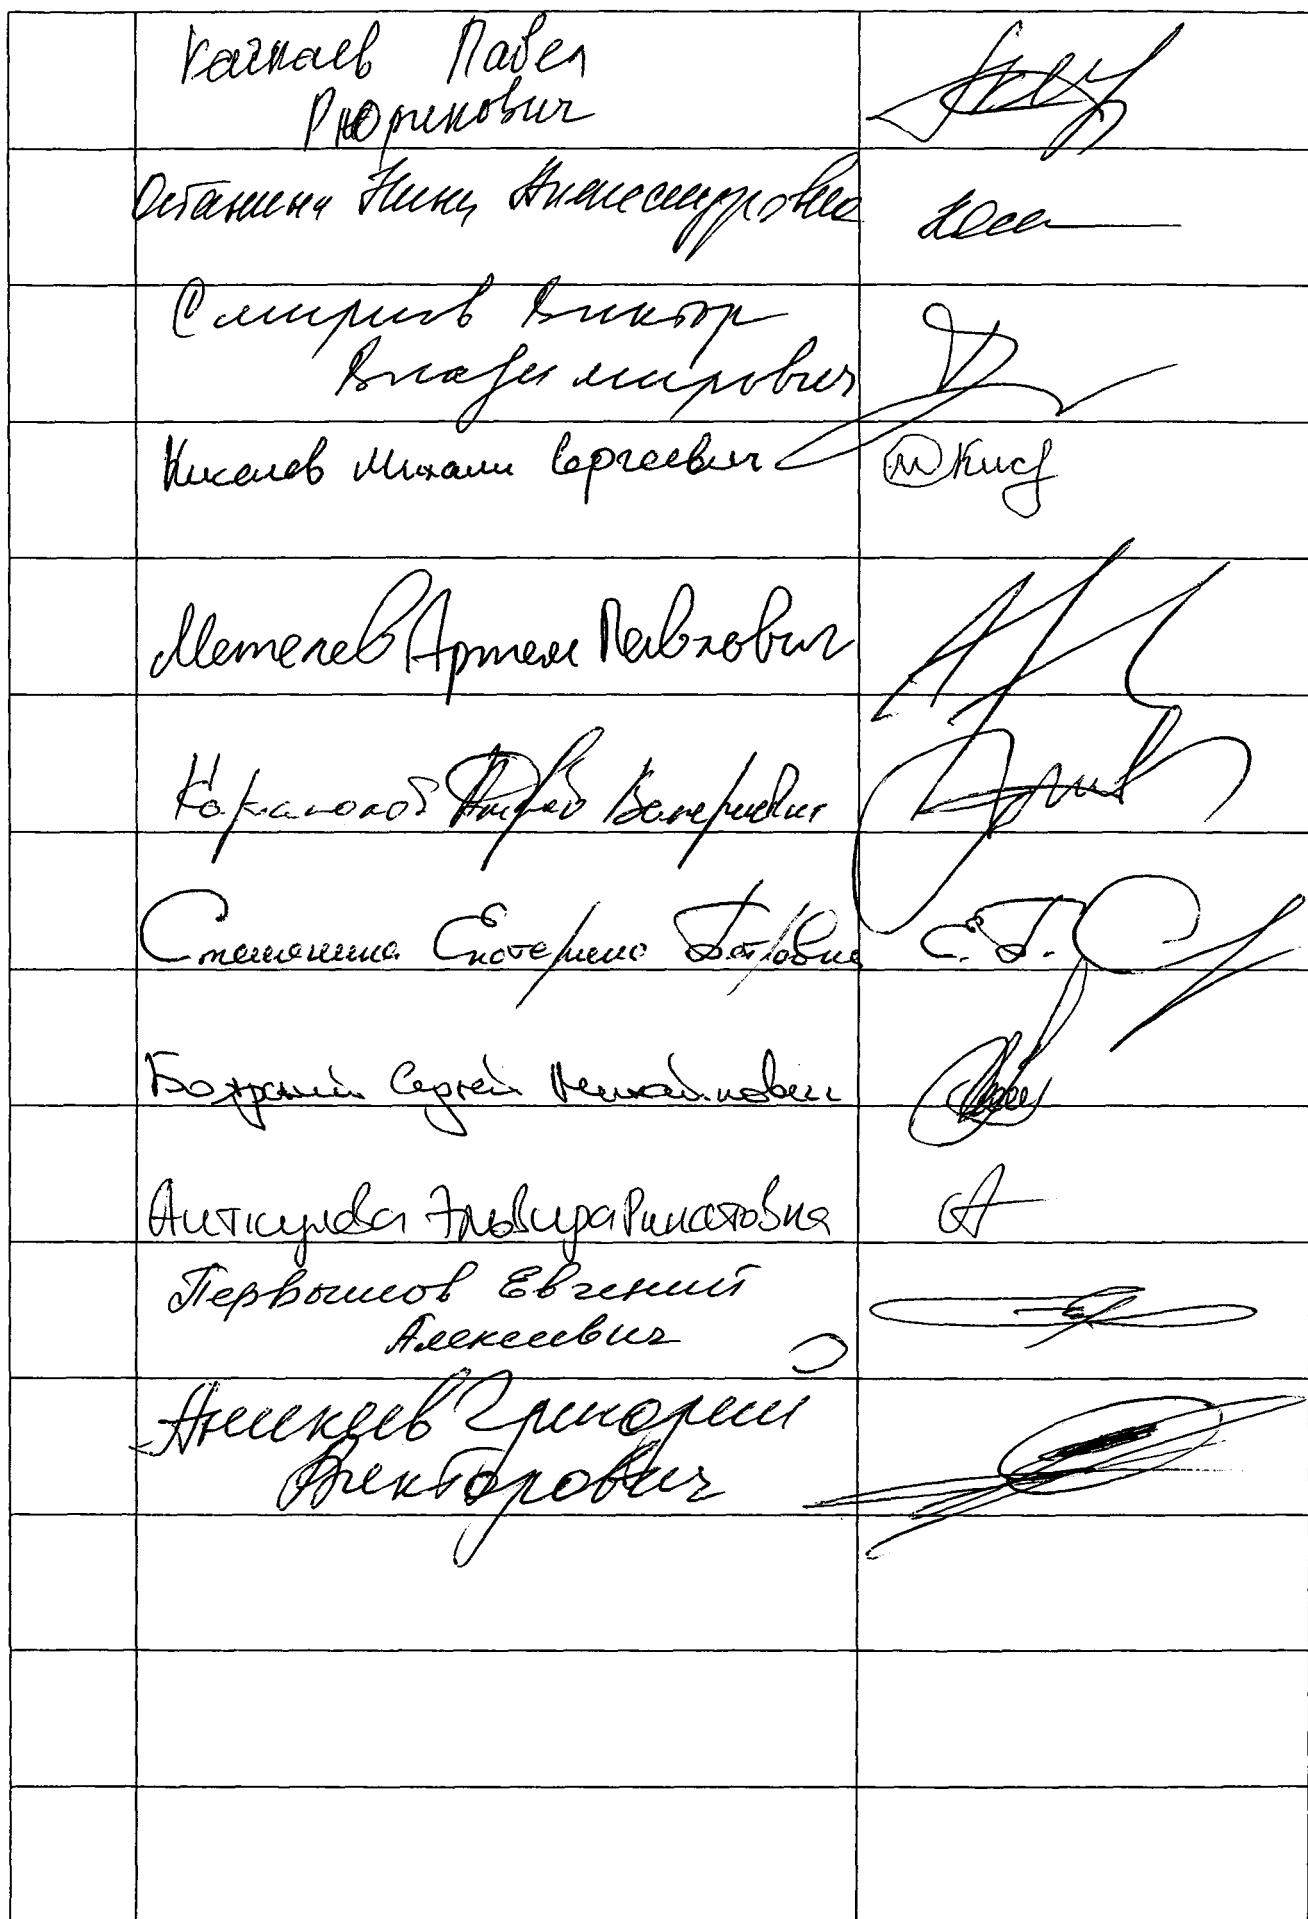 Качкаев Павел
Рюрикович
Останина Нина Александровна
Смирнов Виктор
Владимирович
Киселев Михаил Сергеевич
М Кис
Метелев Артем Павлович
Андрей Валериевич
Стенякина Екатерина Петровна
Е.П. С
Сергей Михайлович
Аиткулова Эльвира Ринатовна
А
Первышов Евгений
Алексеевич
Аникеев Григорий
Викторович